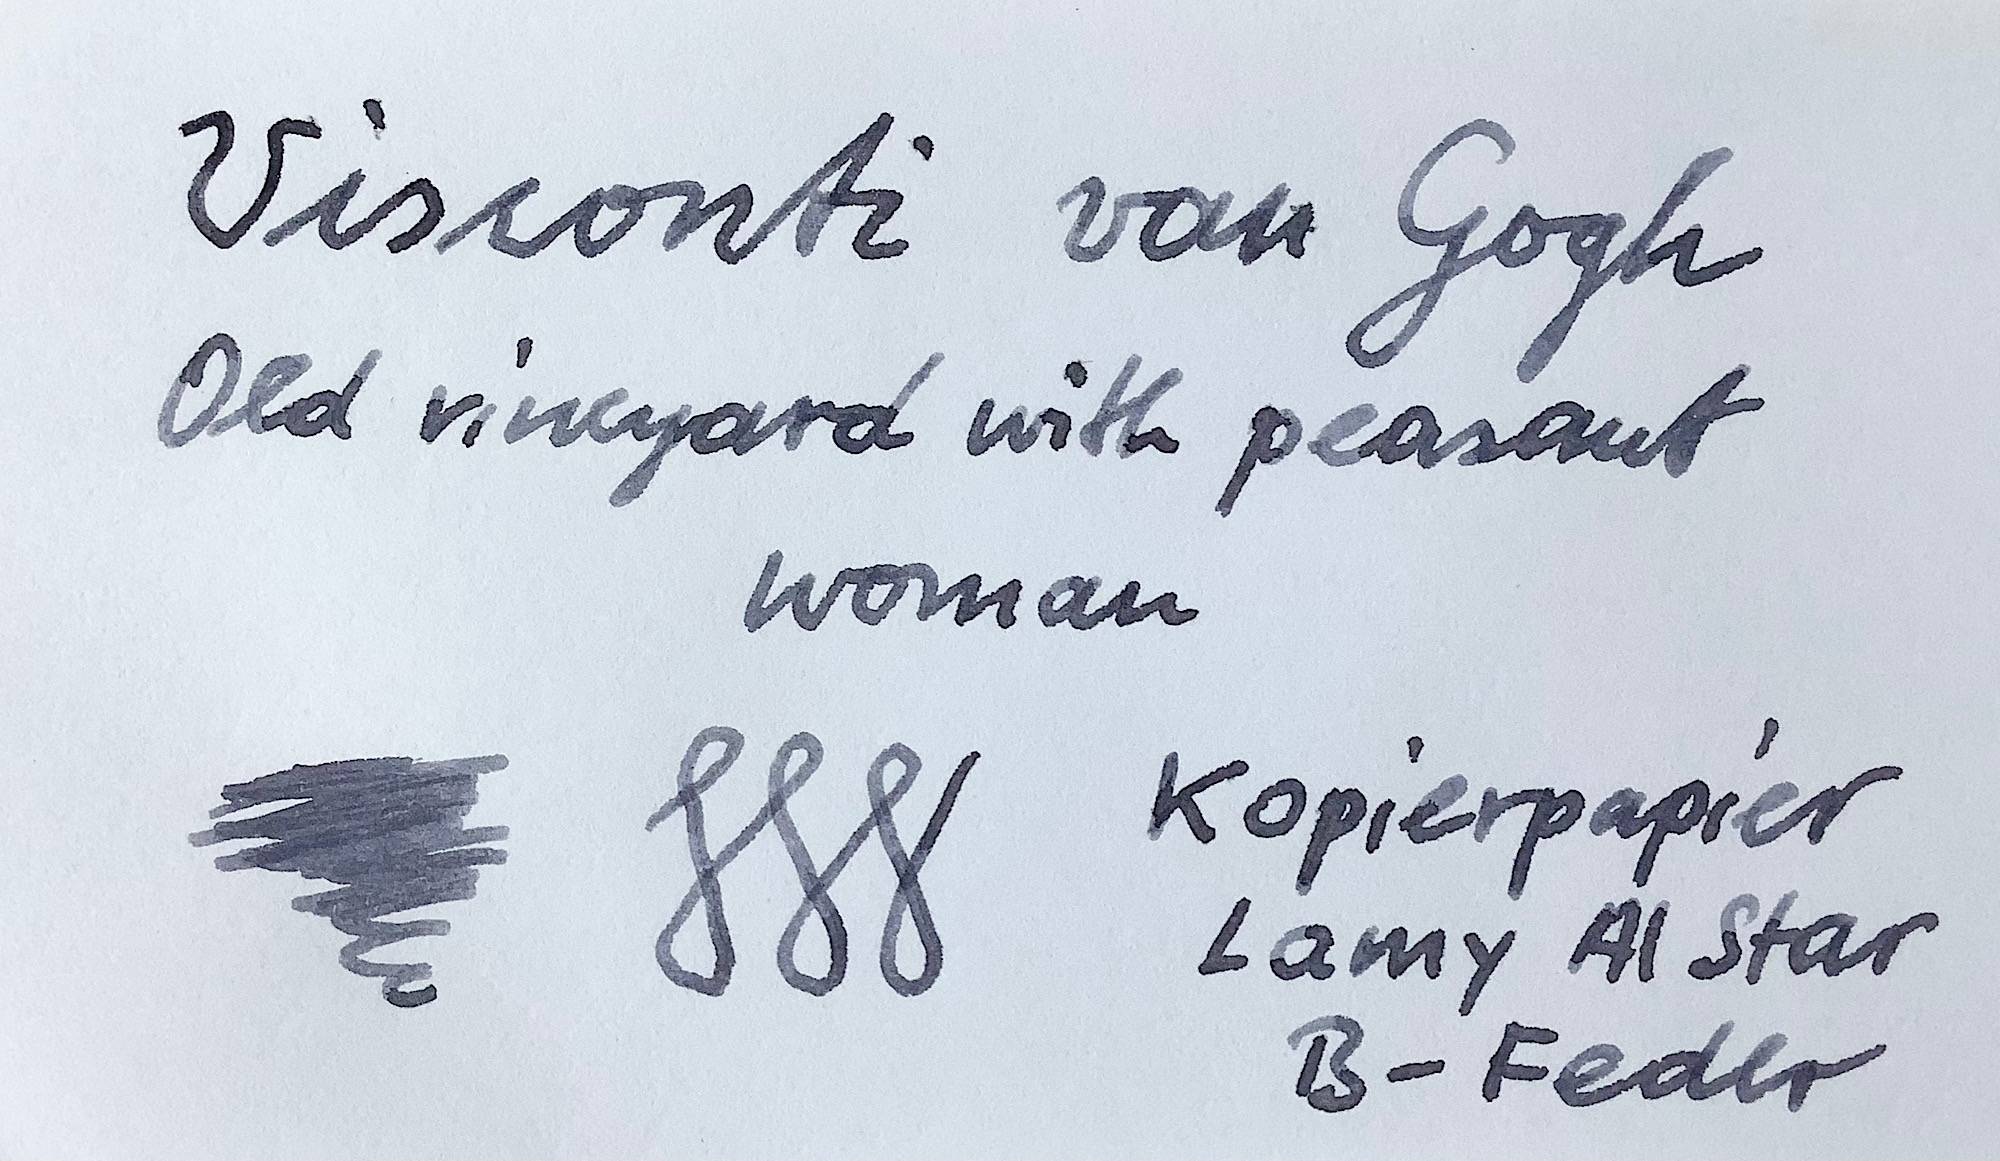 Visconti van Gogh
Old vineyard with peasant
woman
Kopierpapier
Lamy Al Star
B-Feder